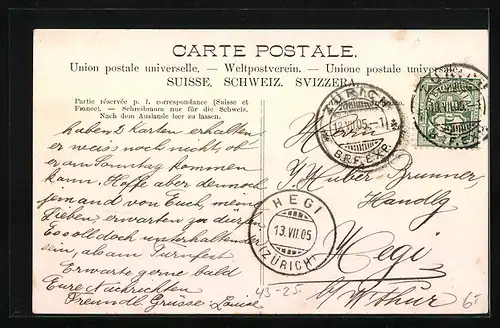 CARTE POSTALE.
Union postale universelle. — Weltpostverein. — Unione postale universale.
SUISSE. SCHWEIZ. SVIZZERA.
Partie réservée p. l. correspondance (Suisse et
France). — Schreibraum nur für die Schweiz.
Nach dem Auslande leer zu lassen.
haben 2 Karten erhalten
er weiss noch nicht, ob
er am Sonntag kommen
kann. Hoffe aber dennoch
jemand von Euch, meine
Lieben, erwarten zu dürfen
Es soll doch unterhaltender
sein, als am Turnfest
Erwarte gerne bald
Eure Nachrichten
Freundl. Grüsse Louise
ZÜRICH
13.VII.05.-1
BRF. EXP.
13.VII.05
BRF. EXP.
J Huber Brunner,
Handlg
Hegi
b/ W'thur
HEGI
13.VII.05
(ZÜRICH)
43-25
6.-